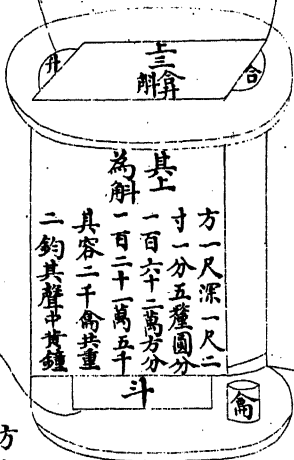 升
上三
斛
合
其上
為斛
方一尺深一尺二
寸一分五釐圓分
一百六十二萬方分
一百二十一萬五千
其容二千龠共重
二鈞其聲中黃鐘
斗
龠
方